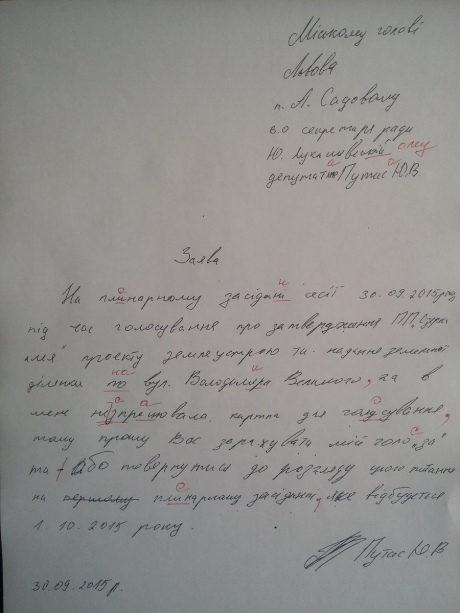 Міському голові
Львова
п. А. Садовому
в.о секретаря ради
Ю. Лукашівській ому
депутата Путас Ю.В.
Заява
На плінарному засідані сесії 30.09.2015 року
під час голосування про затвердження ПП
проекту землеустрою та надання земельної
ділянки по на вул. Володимира Великого, а в
мене карта для голусування,
тому прошу Вас зарахувати мій голо "за"
та + Або повернутися до розгляду цього питання
на плінарному засідані, яке відбудеться
1 10.2015 року.
Путас Ю.В.
30.09.2015 р.